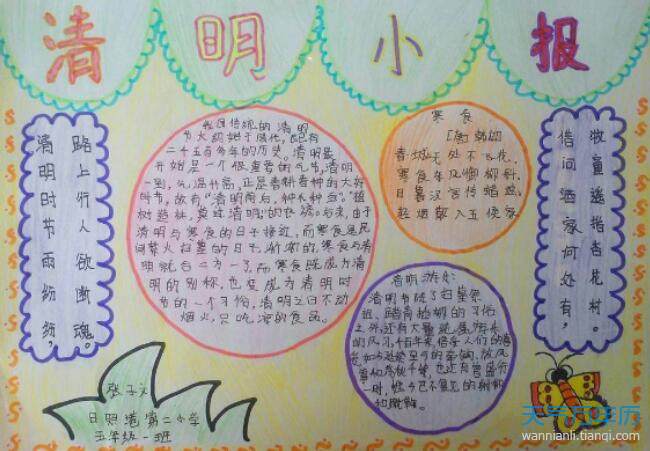 清明小报
清明时节雨纷纷，
路上行人欲断魂。
我国传统的清明
节大约始于周代，已有
二千五百多年的历史。清明最
开始是一个很重要的节气，清明
一到，气温升高，正是春耕春种的大好
时节，故有“清明前后，种瓜种豆”。“植
树造林，莫过清明”的农谚。后来，由于
清明与寒食的日子接近，而寒食是民
间禁火扫墓的日子，渐渐的，寒食与清
明就合二为一了，而寒食既成为清
明的别称，也变成为清明时
节的一个习俗，清明之日不动
烟火，只吃凉的食品。
寒 食
［唐］韩翃
春城无处不飞花，
寒食东风御柳斜。
日暮汉宫传蜡烛，
轻烟散入五侯家
借问酒家何处有，
牧童遥指杏花村。
清明节除了扫墓祭
祖、踏青插柳的习俗
张子文
日照港第二小学
五年级一班
天气万年历
wannianli.tianqi.com